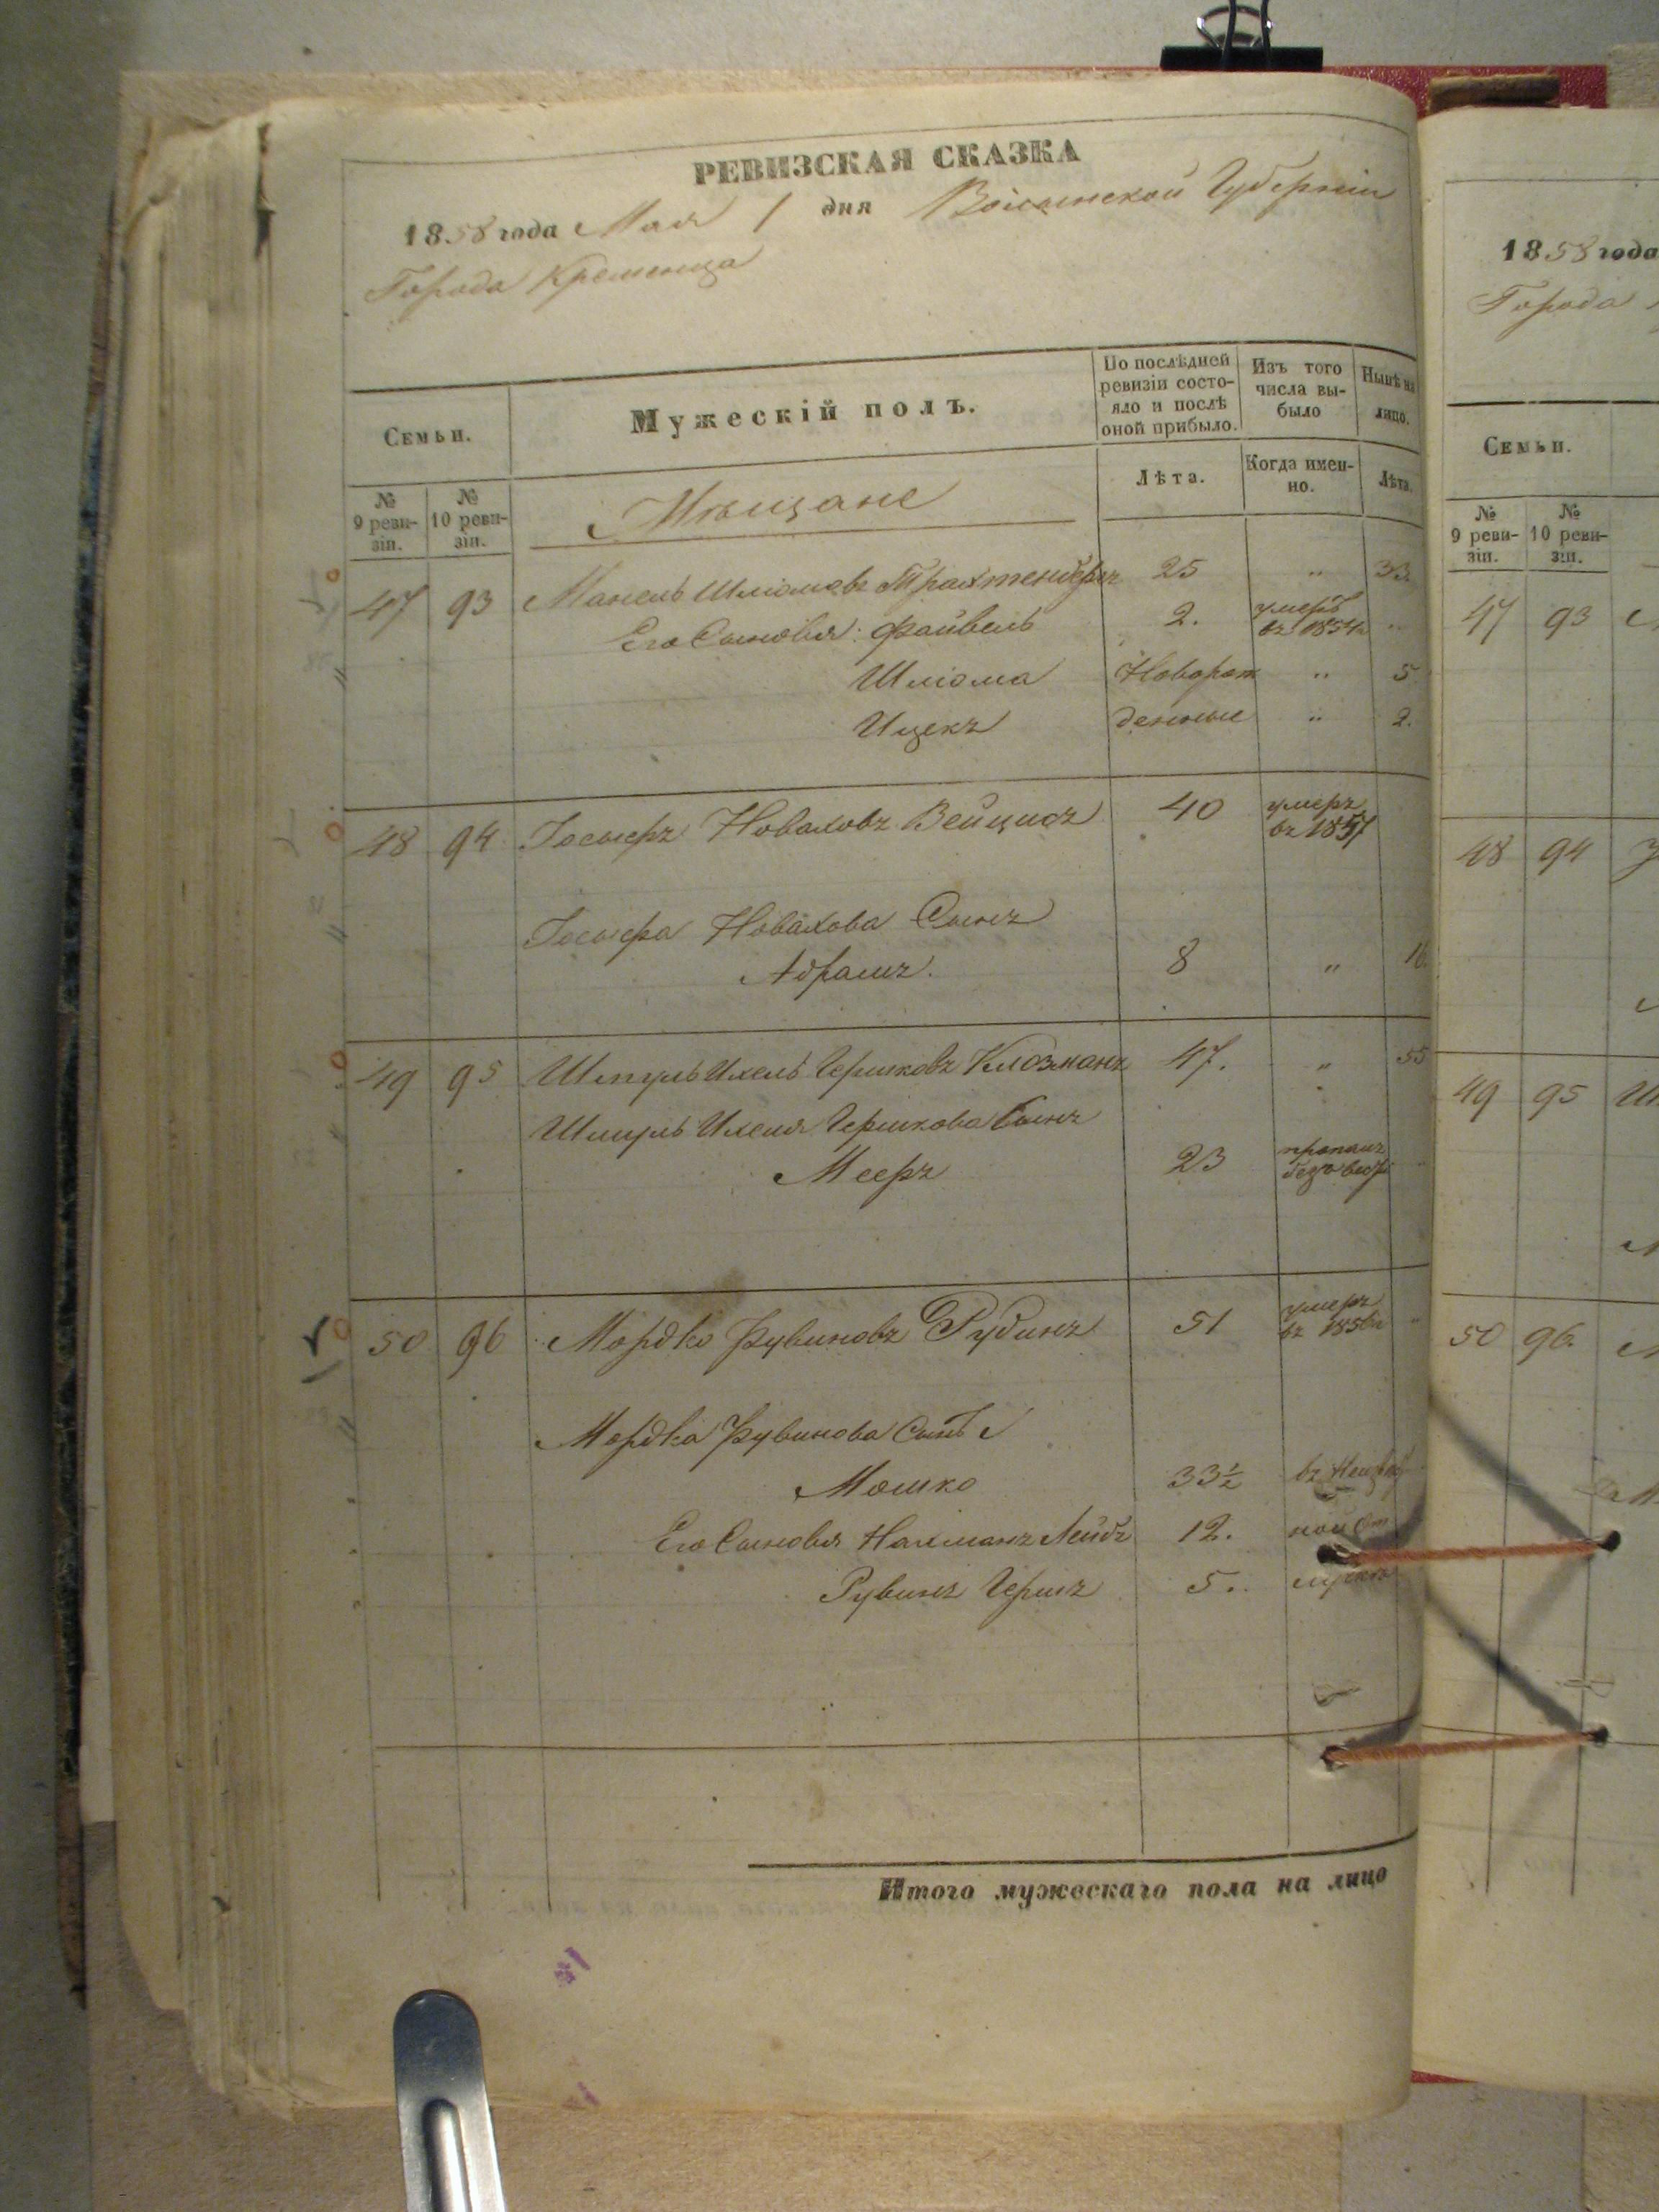 РЕВИЗСКАЯ СКАЗКА
1858 года Мая 1 дня Волынской Губерніи
Города Кременца
Семьи.
Мужескій полъ.
По послѣдней ревизіи состояло и послѣ оной прибыло.
Изъ того числа выбыло
Нынѣ на лицо.
№ 9 ревизіи.
№ 10 ревизіи.
Мѣщане
Лѣта.
Когда именно.
Лѣта.
47 93 Манель Шліомовъ Трахтенберг 25 " 33.
Его Сыновья: Файвель 2. умеръ въ 1854 "
Шліома Новорож " 5
Ицекъ денные " 2.
48 94 Іосьферъ Новаховъ Вейцисъ 40 умеръ въ 1857
Іосьфера Новахова Сынъ
Абрамъ. 8 " 16
49 95 Шмуль Ихель Гершковъ Клозманъ 47. " 55
Шмуль Ихеля Гершкова Сынъ
Мееръ 23 пропалъ безъ вест
50 96 Мордко Рувиновъ Рубинъ 51 умеръ въ 1856 "
Мордка Рувинова Сынъ
Мошко 33½ въ
Его Сыновья Нахманъ Лейбъ 12. ной
Рувинъ Гершъ 5.
Итого мужескаго пола на лицо
1858 года
Города
Семьи.
№ 9 ревизіи.
№ 10 ревизіи.
47 93
48 94
49 95
50 96.